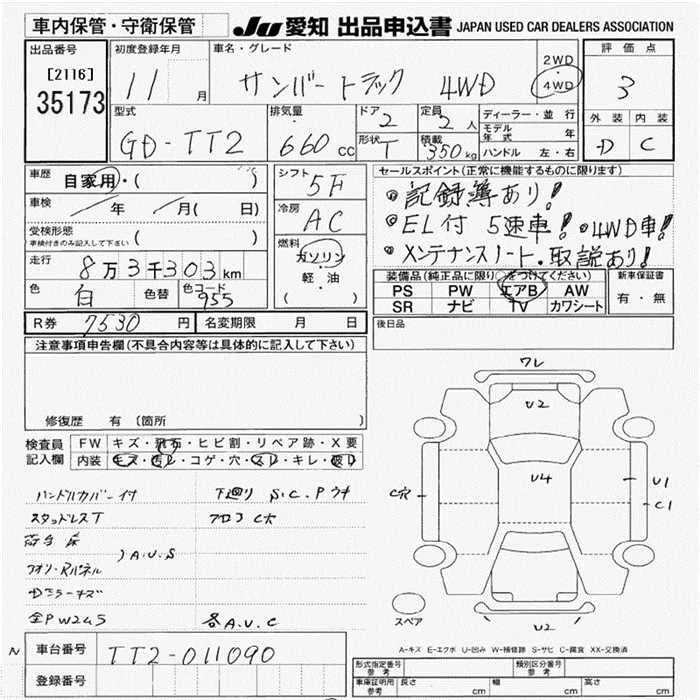 車内保管・守衛保管
JU 愛知 出品申込書 JAPAN USED CAR DEALERS ASSOCIATION
出品番号
[2116]
35173
初度登録年月
11 月
車名・グレード
サンバートラック 4WD
2WD
4WD
評価点
3
外装 内装
D C
型式
GD-TT2
排気量
660 cc
ドア
2
形状
T
定員
2人
積載
350kg
ディーラー・並行
モデル年式 年
ハンドル 左・右
車歴
自家用・( )
車検
年 月( 日)
受検形態
車検付きのみ記入して下さい ( )
走行
8万3千303km
色
白
色替
色コード
955
シフト
5F
冷房
AC
燃料
ガソリン
軽・油
( )
R券 7530 円
名変期限 月 日
セールスポイント(正常に機能するものに限ります)
記録簿あり!
EL付 5速車! 4WD車!
メンテナンスノート・取説あり!
装備品(純正品に限り○をつけてください)
PS PW エアB AW
SR ナビ TV カワシート
新車保証書
有・無
後日品
注意事項申告欄(不具合内容等は具体的に記入して下さい)
修復歴 有(箇所 )
検査員記入欄
FW キズ・飛石・ヒビ割・リペア跡・X要
内装 キズ・汚レ・コゲ・穴・スレ・キレ・破レ
ハンドルカバー付
スタッドレスT
荷台 床
)A.U.S
Dミラーキズ
全PW2G5
下廻り S.C.Pウキ
フロアC大
各A.U.C
ワレ
U2
U4
C穴
U1
C1
U2
スペア
A-キズ E-エクボ U-凹み W-補修跡 S-サビ C-腐食 XX-交換済
N
車台番号 TT2-011090
登録番号
形式指定番号 参考
類別区分番号 参考
車庫証明用 参考 長さ cm 幅 cm 高さ cm